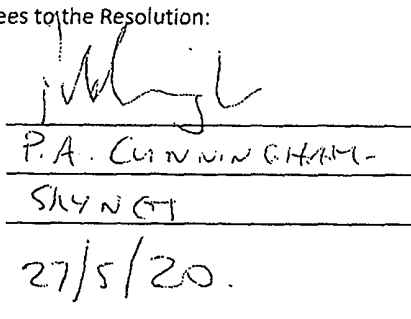 ees to the Resolution:
P.A. CUNNINGHAM-
SKYNET
27/5/20.